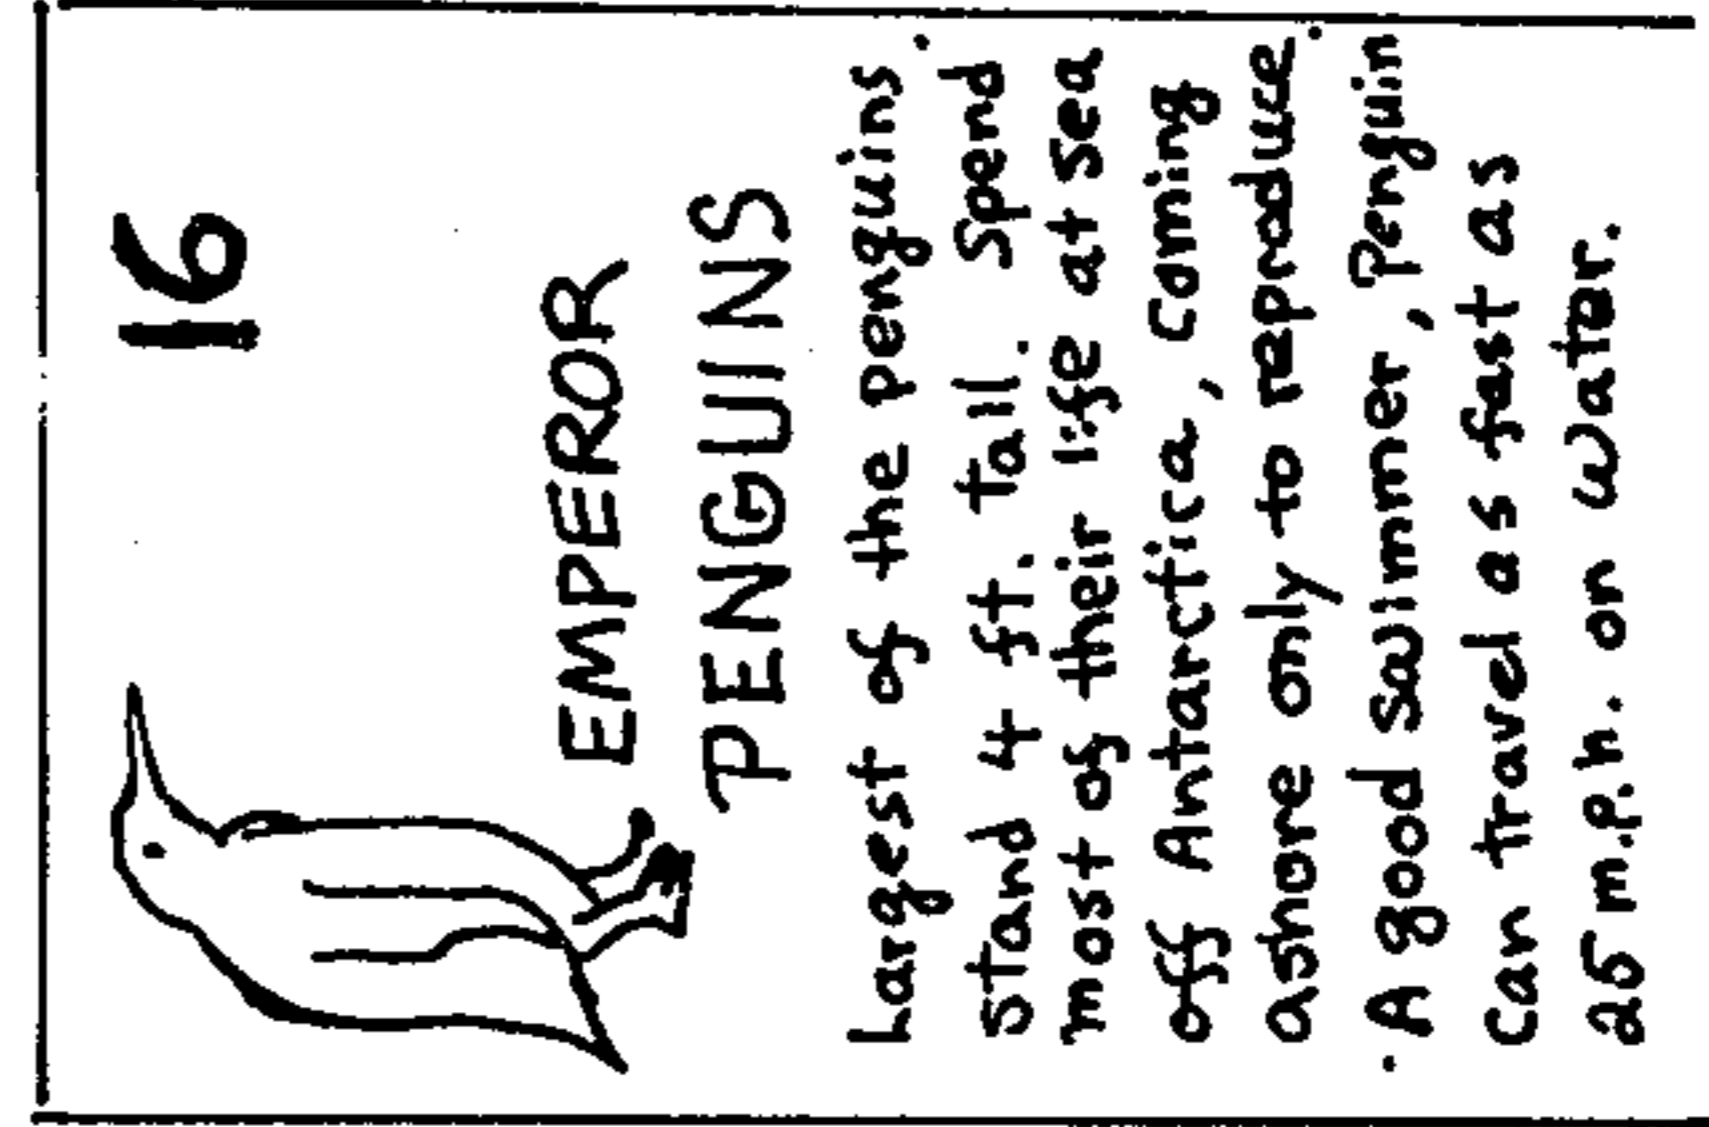 16
EMPEROR
PENGUINS
Largest of the penguins.
Stand 4 ft. tall. Spend
most of their life at sea
off Antarctica, coming
ashore only to reproduce.
. A good swimmer, Penguin
can travel as fast as
25 m.p.h. on water.